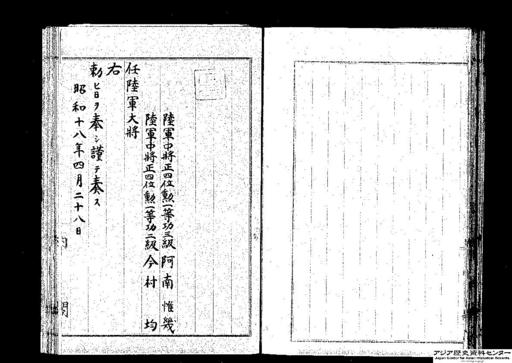 陸軍中將正四位勲一等功三級 阿南惟幾
陸軍中將正四位勲一等功二級 今村均
任陸軍大將
右
勅旨ヲ奉シ謹テ奏ス
昭和十八年四月二十八日
内閣
アジア歴史資料センター
Japan Center for Asian Historical Records